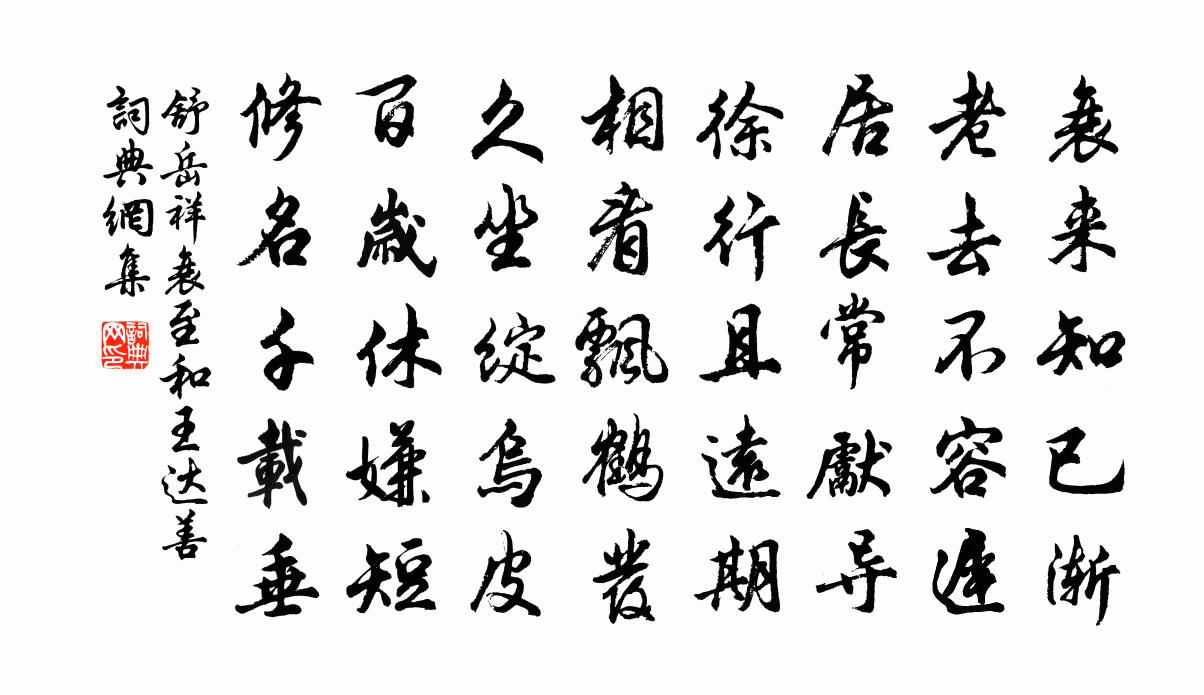 衰来知已渐
老去不容遲
居長常獻导
徐行且遠期
相看飄鶴發
久坐綻烏皮
百歲休嫌短
修名千載垂
舒岳祥衰至和王达善
詞典網集
詞典网印